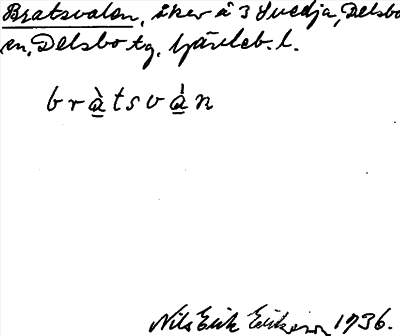 Bratsvalen, åker å 3 Svedja, Delsbo
en, Delsbo tg. Gävleb. l.
bràtsván
Nils Erik Eriksson 1936.